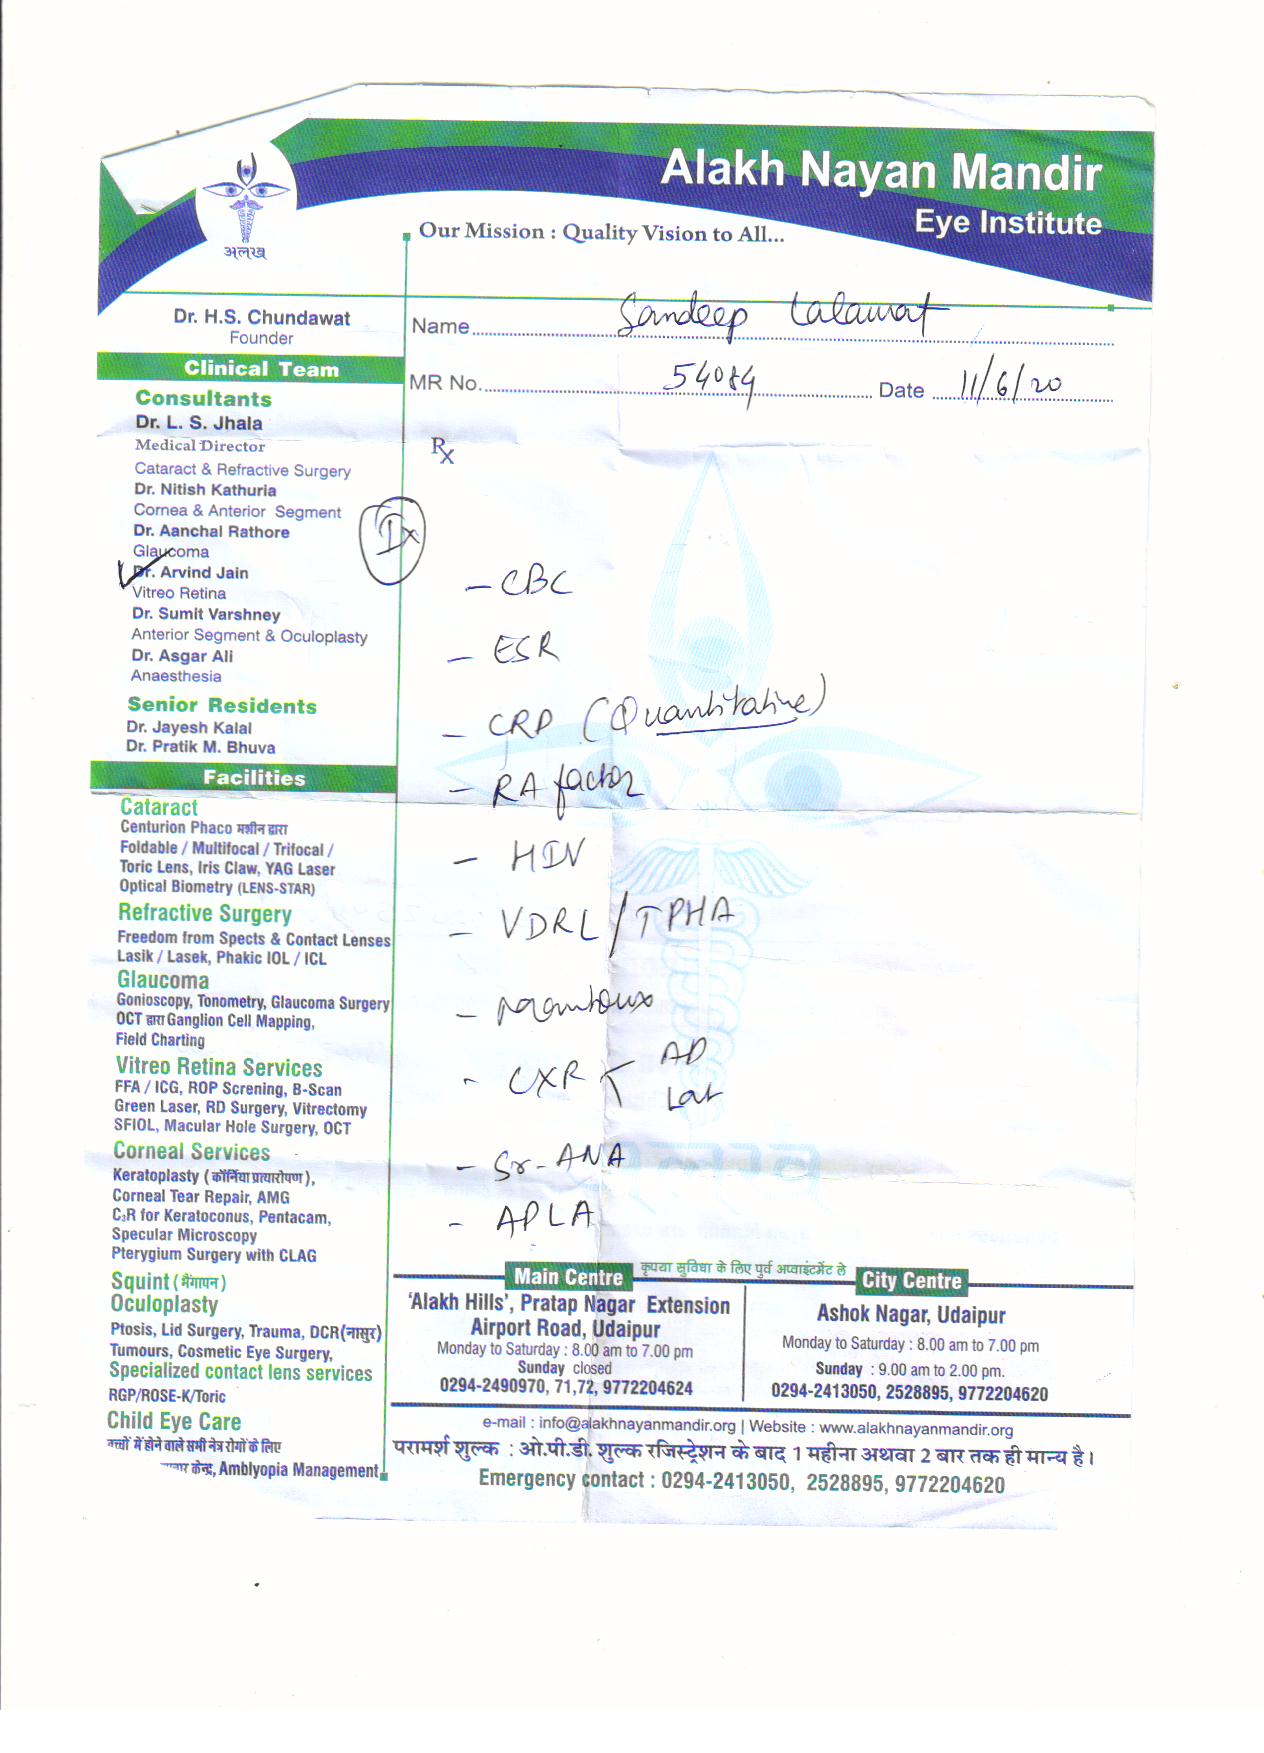 Alakh Nayan Mandir
Eye Institute
Our Mission : Quality Vision to All...
अलख
Dr. H.S. Chundawat
Founder
Name Sandeep Lalawat
MR No. 54084 Date 11/6/20
Clinical Team
Consultants
Dr. L. S. Jhala
Medical Director
Cataract & Refractive Surgery
Dr. Nitish Kathuria
Cornea & Anterior Segment
Dr. Aanchal Rathore
Glaucoma
Dr. Arvind Jain
Vitreo Retina
Dr. Sumit Varshney
Anterior Segment & Oculoplasty
Dr. Asgar Ali
Anaesthesia
Senior Residents
Dr. Jayesh Kalal
Dr. Pratik M. Bhuva
Facilities
Cataract
Centurion Phaco मशीन द्वारा
Foldable / Multifocal / Trifocal /
Toric Lens, Iris Claw, YAG Laser
Optical Biometry (LENS-STAR)
Refractive Surgery
Freedom from Spects & Contact Lenses
Lasik / Lasek, Phakic IOL / ICL
Glaucoma
Gonioscopy, Tonometry, Glaucoma Surgery
OCT द्वारा Ganglion Cell Mapping,
Field Charting
Vitreo Retina Services
FFA / ICG, ROP Screning, B-Scan
Green Laser, RD Surgery, Vitrectomy
SFIOL, Macular Hole Surgery, OCT
Corneal Services
Keratoplasty (कॉर्निया प्रत्यारोपण),
Corneal Tear Repair, AMG
C₃R for Keratoconus, Pentacam,
Specular Microscopy
Pterygium Surgery with CLAG
Squint (भैंगापन)
Oculoplasty
Ptosis, Lid Surgery, Trauma, DCR(नासुर)
Tumours, Cosmetic Eye Surgery,
Specialized contact lens services
RGP/ROSE-K/Toric
Child Eye Care
बच्चों में होने वाले सभी नेत्र रोगों के लिए
केन्द्र, Amblyopia Management
Rx
Ix
- CBC
- ESR
- CRP (Quantitative)
- RA factor
- HIV
- VDRL / TPHA
- Mantoux
- CXR < AP
Lat
- Sr- ANA
- APLA
कृपया सुविधा के लिए पुर्व अप्वाइंटमेंट ले
Main Centre
'Alakh Hills', Pratap Nagar Extension
Airport Road, Udaipur
Monday to Saturday : 8.00 am to 7.00 pm
Sunday closed
0294-2490970, 71,72, 9772204624
City Centre
Ashok Nagar, Udaipur
Monday to Saturday : 8.00 am to 7.00 pm
Sunday : 9.00 am to 2.00 pm.
0294-2413050, 2528895, 9772204620
e-mail : info@alakhnayanmandir.org | Website : www.alakhnayanmandir.org
परामर्श शुल्क : ओ.पी.डी. शुल्क रजिस्ट्रेशन के बाद 1 महीना अथवा 2 बार तक ही मान्य है।
Emergency contact : 0294-2413050, 2528895, 9772204620